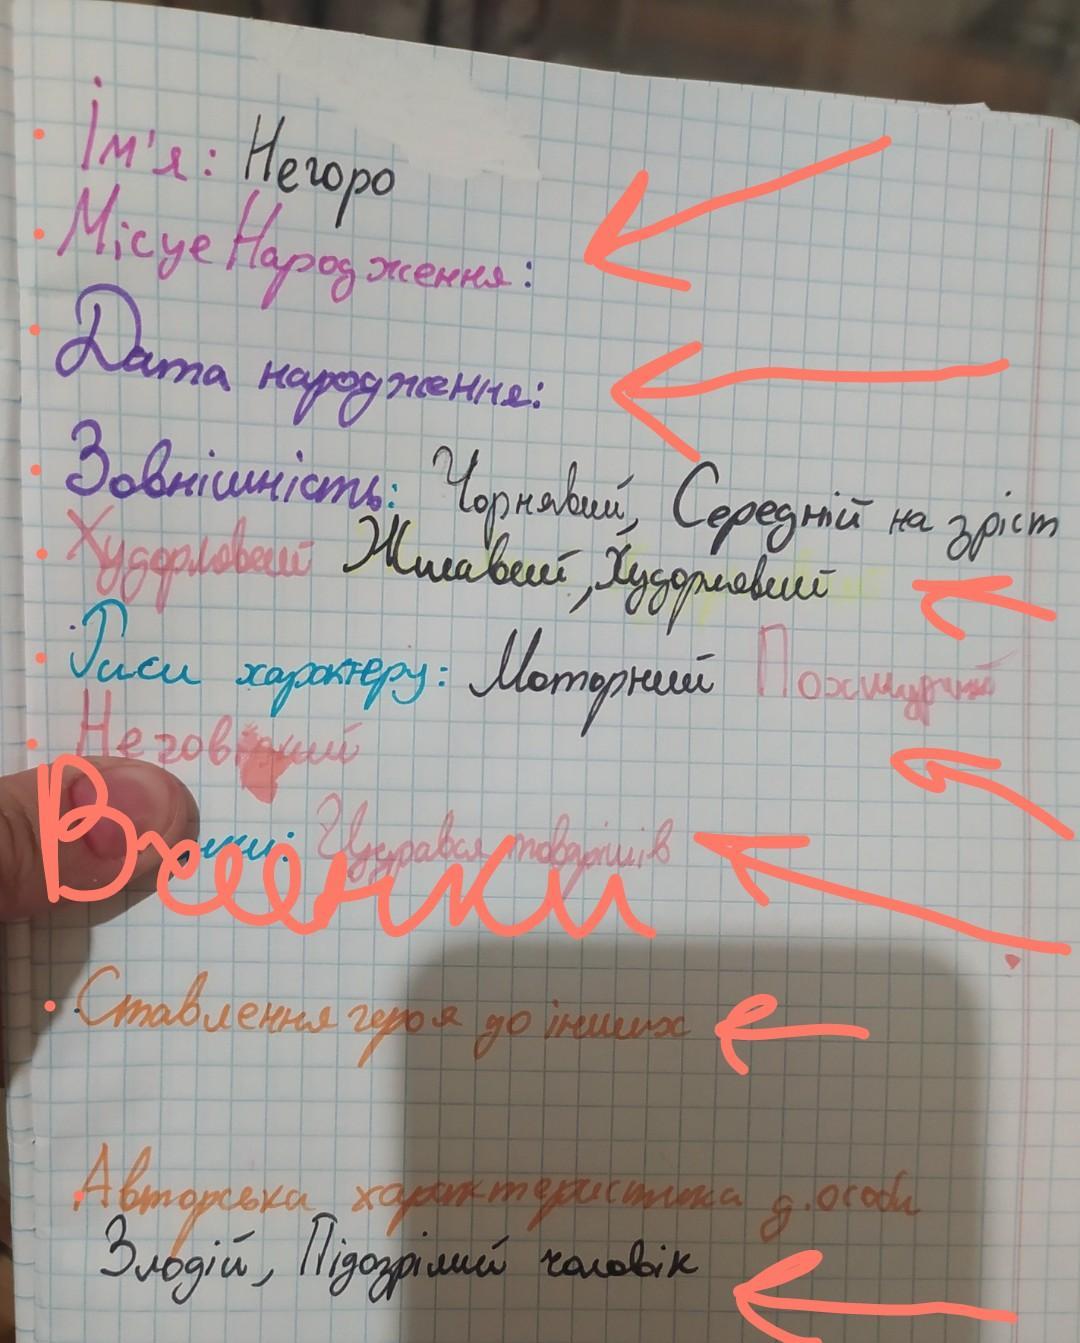 Ім'я: Негоро
Місце Народження:
Дата народження:
Зовнішність: Чорнявий, Середній на зріст
Худорлявий Жилавий, Худорлявий
Риси характеру: Моторний Похмурий
Неговіркий
Вчинки: Цурався товаришів
Ставлення героя до інших
Авторська характеристика д. особи
Злодій, Підозрілий чоловік